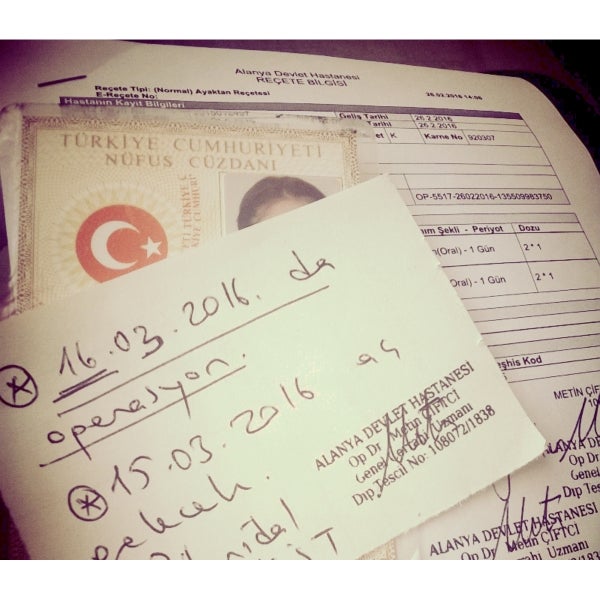 Alanya Devlet Hastanesi
REÇETE BİLGİSİ
Reçete Tipi: (Normal) Ayaktan Reçetesi
26.02.2016 14:06
E-Reçete No:
Hastanın Kayıt Bilgileri
Geliş Tarihi 26.2.2016
Tarihi 26.2.2016
et K Karne No 920307
OP-5517-26022016-135509983750
Şekli - Periyot Dozu
(Oral) - 1 Gün 2 * 1
(Oral) - 1 Gün 2 * 1
Kod
METİN ÇİFTCİ
TÜRKİYE CUMHURİYETİ
NÜFUS CÜZDANI
16.03.2016. da
operasyon.
15.03.2016 aç
ALANYA DEVLET HASTANESİ
Op Dr. Metin ÇİFTCİ
Genel Cerrahi Uzmanı
Dip Tescil No: 108072/1838
ALANYA
Op Dr
Genel
Dip Tes
ALANYA DEVLET HASTANESİ
Op Dr Metin ÇİFTCİ
Uzmanı